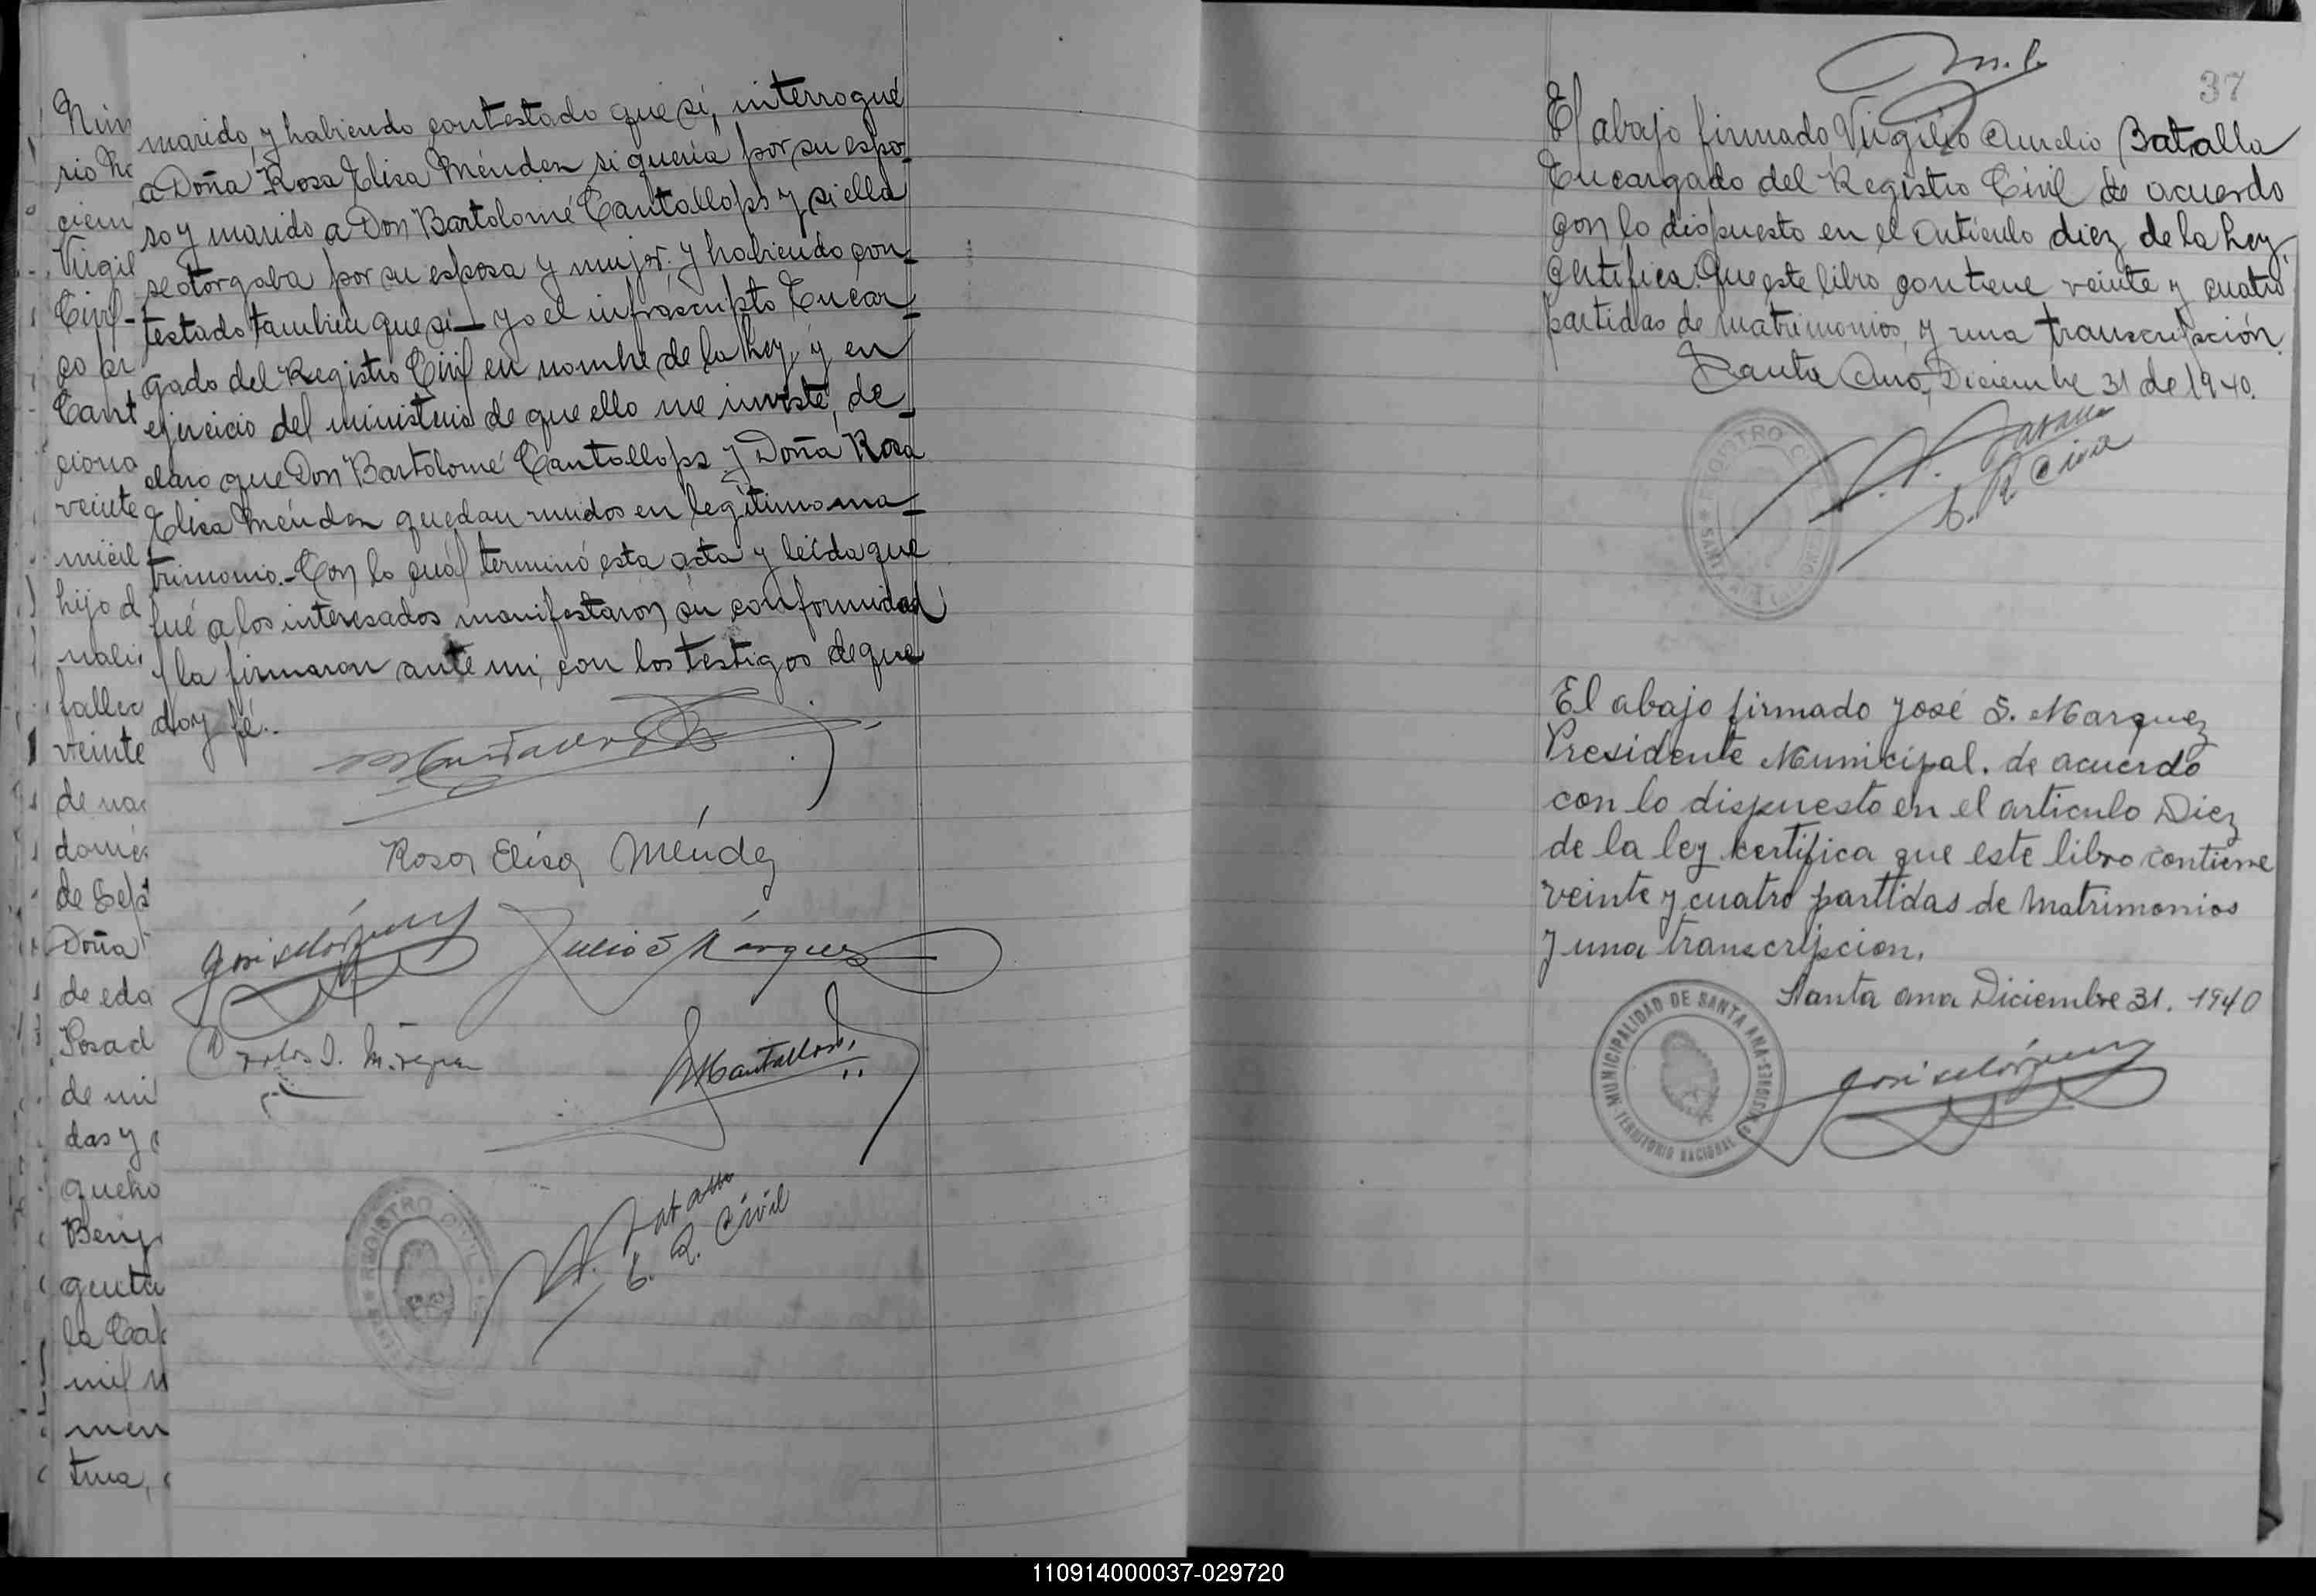 marido, y habiendo contestado que sí, interrogué
a Doña Rosa Elisa Méndez si quería por su espo-
so y marido a Don Bartolomé Cantallops y si ella
se otorgaba por su esposa y mujer. y habiendo con-
testado tambien que si — yo el infrascripto Encar-
gado del Registro Civil en nombre de la Ley, y en
ejercicio del ministerio de que ello me inviste, de-
claro que Don Bartolomé Cantallops y Doña Rosa
Elisa Méndez quedan unidos en legítimo ma-
trimonio.- Con lo cuál terminó esta acta y leída que
fué a los interesados manifestaron su conformidad
y la firmaron ante mi, con los testigos de que
doy fé.-
Rosa Elisa Méndez
Julio S Márquez
Carlos
R. Civil
REGISTRO CIVIL
Núm
rio
cien
Virgil
Civil-
co pr
Cant
ciona
veinte
micil
hijo d
nali
fallec
veinte
de na
domés
de Sep
Doña
de eda
Posad
de mi
das y
que ho
Beni
genti
la Cal
mil
men
tina,
37
El abajo firmado Virgilio Aurelio Batalla
Encargado del Registro Civil de acuerdo
con lo dispuesto en el Artículo diez de la Ley,
Certifica: Que este libro contiene veinte y cuatro
partidas de matrimonios, y una transcripción.
Santa Ana, Diciembre 31 de 1940.
REGISTRO CIVIL
E. R. Civil
El abajo firmado José S. Marquez
Presidente Municipal. de acuerdo
con lo dispuesto en el articulo Diez
de la ley certifica que este libro contiene
veinte y cuatro partidas de Matrimonios
y una transcripcion.
Santa Ana Diciembre 31. 1940
MUNICIPALIDAD DE SANTA ANA-MISIONES
TERRITORIO NACIONAL
110914000037-029720